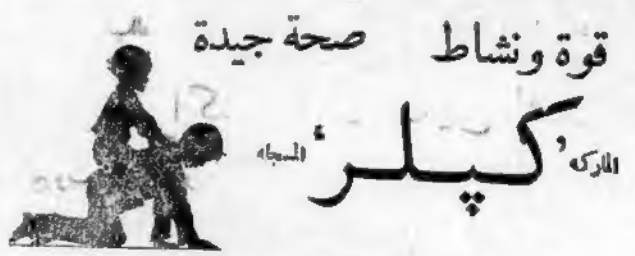 قوة ونشاط صحة جيدة
الماركه ’كپلر‘ المسجله